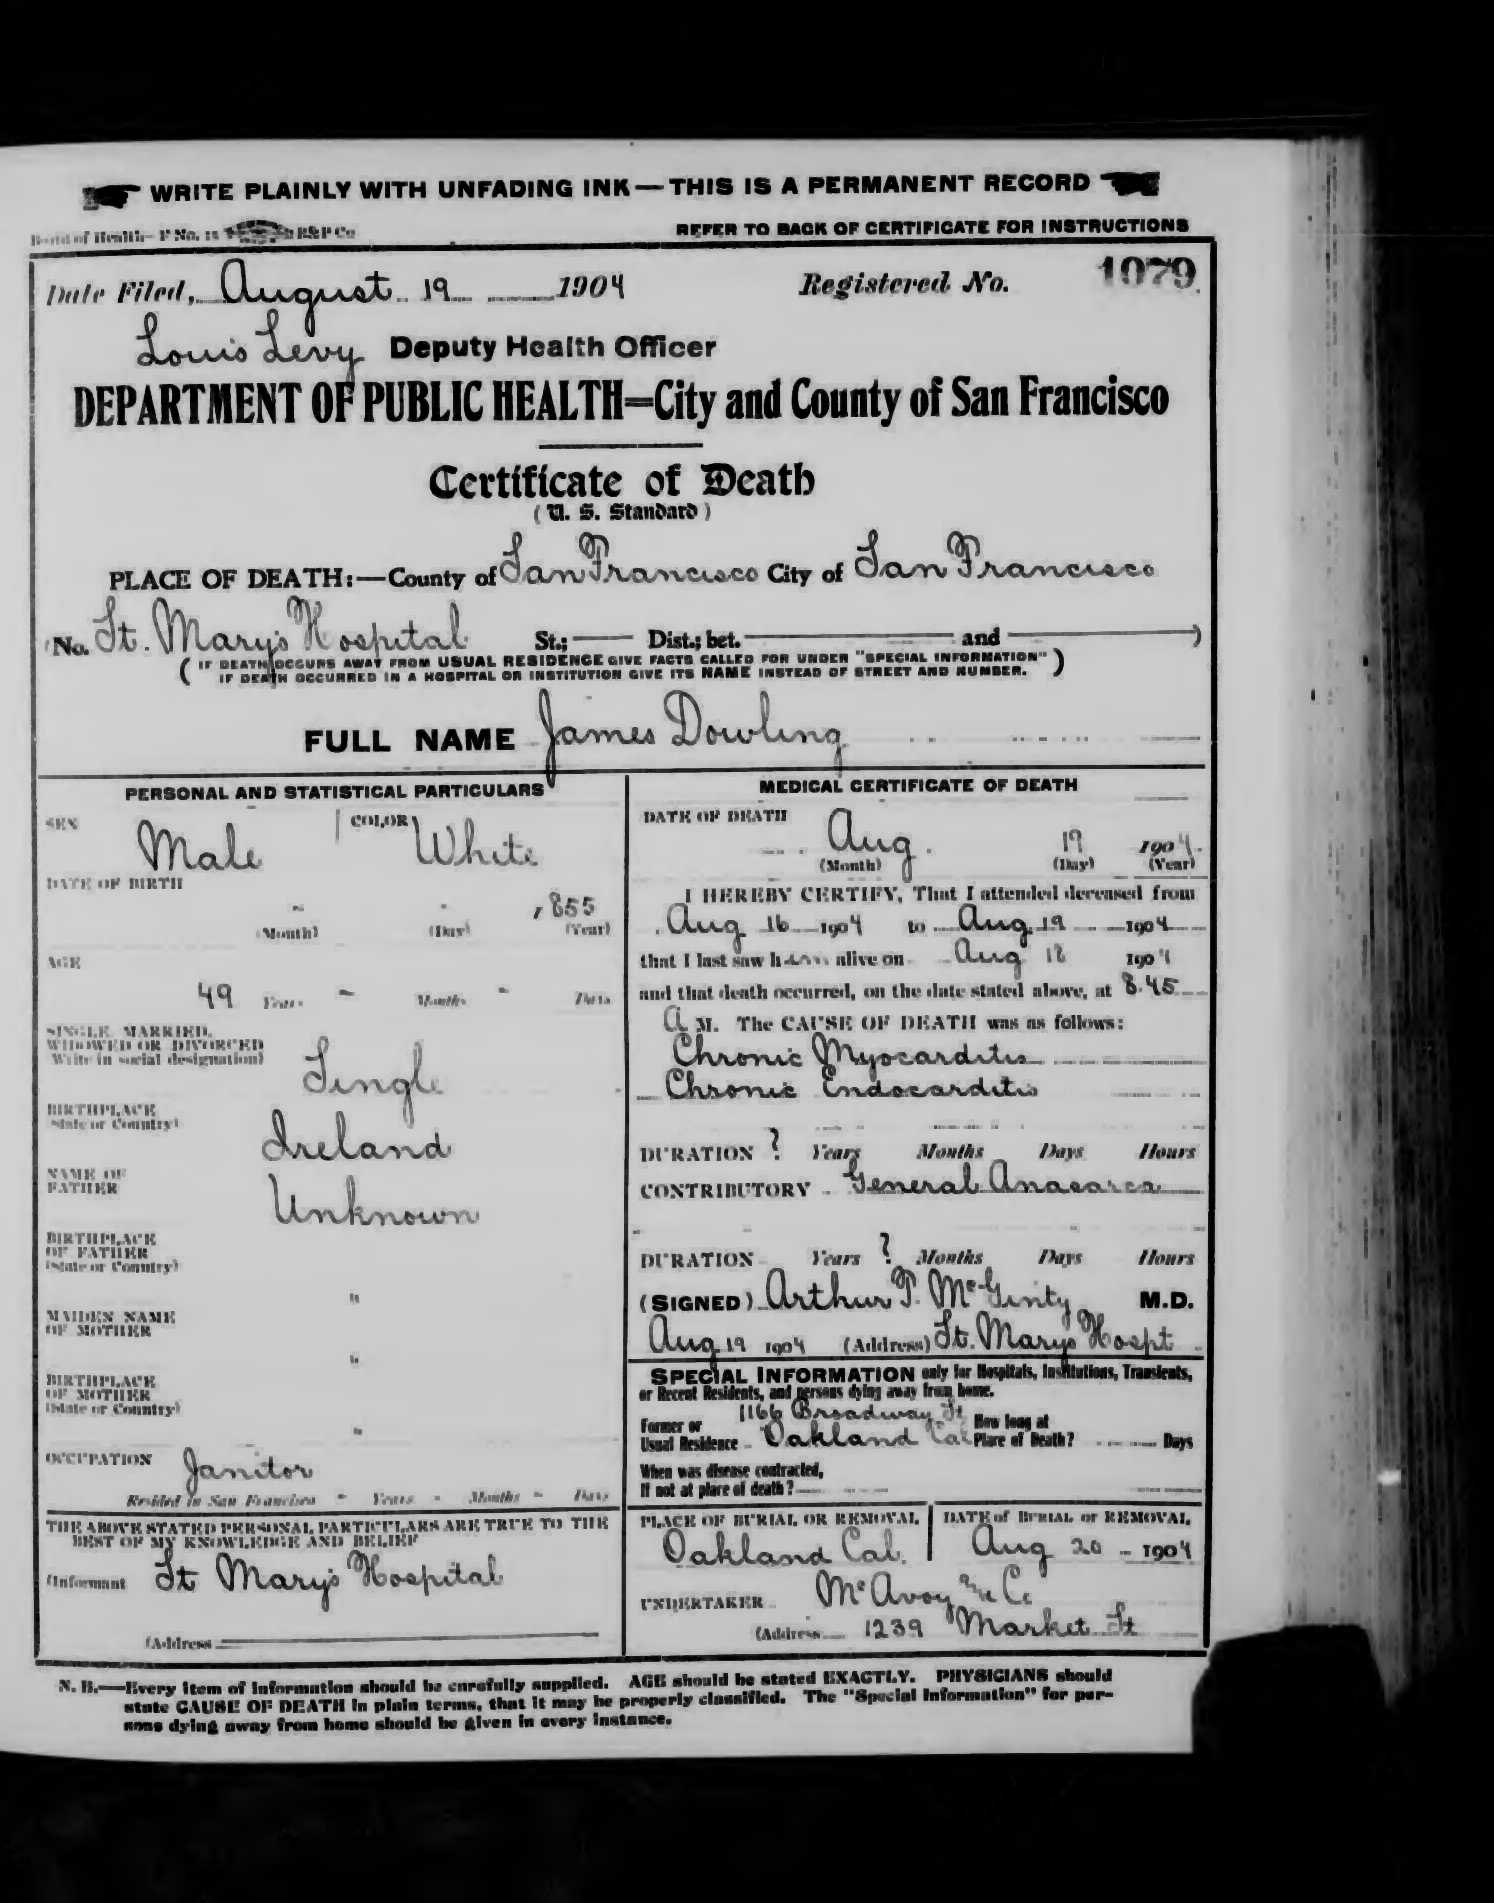 WRITE PLAINLY WITH UNFADING INK — THIS IS A PERMANENT RECORD
Board of Health—F No. 15 B&P Co
REFER TO BACK OF CERTIFICATE FOR INSTRUCTIONS
Date Filed, August 19 1904 Registered No. 1079
Louis Levy Deputy Health Officer
DEPARTMENT OF PUBLIC HEALTH=City and County of San Francisco
Certificate of Death
(U. S. Standard)
PLACE OF DEATH:—County of San Francisco City of San Francisco
(No. St. Mary's Hospital St.; — Dist.; bet. — and —)
(IF DEATH OCCURS AWAY FROM USUAL RESIDENCE GIVE FACTS CALLED FOR UNDER "SPECIAL INFORMATION"
IF DEATH OCCURRED IN A HOSPITAL OR INSTITUTION GIVE ITS NAME INSTEAD OF STREET AND NUMBER.)
FULL NAME James Dowling
PERSONAL AND STATISTICAL PARTICULARS
SEX Male COLOR White
DATE OF BIRTH
- - 1855
(Month) (Day) (Year)
AGE
49 Years - Months - Days
SINGLE, MARRIED,
WIDOWED OR DIVORCED
(Write in social designation)
Single
BIRTHPLACE
(State or Country)
Ireland
NAME OF
FATHER
Unknown
BIRTHPLACE
OF FATHER
(State or Country)
"
MAIDEN NAME
OF MOTHER
"
BIRTHPLACE
OF MOTHER
(State or Country)
"
OCCUPATION Janitor
Resided in San Francisco - Years - Months - Days
THE ABOVE STATED PERSONAL PARTICULARS ARE TRUE TO THE
BEST OF MY KNOWLEDGE AND BELIEF
(Informant St Mary's Hospital
(Address
MEDICAL CERTIFICATE OF DEATH
DATE OF DEATH
Aug. 19 1904
(Month) (Day) (Year)
I HEREBY CERTIFY, That I attended deceased from
Aug 16 1904 to Aug 19 1904
that I last saw him alive on Aug 18 1904
and that death occurred, on the date stated above, at 8.45
A M. The CAUSE OF DEATH was as follows:
Chronic Myocarditis
Chronic Endocarditis
DURATION ? Years Months Days Hours
CONTRIBUTORY General Anasarca
DURATION Years ? Months Days Hours
(SIGNED) Arthur T. McGinty M.D.
Aug 19 1904 (Address) St. Mary's Hospt
SPECIAL INFORMATION only for Hospitals, Institutions, Transients,
or Recent Residents, and persons dying away from home.
Former or
Usual Residence
1166 Broadway St
Oakland Cal
How long at
Place of Death? Days
When was disease contracted,
If not at place of death?
PLACE OF BURIAL OR REMOVAL
Oakland Cal.
DATE of BURIAL or REMOVAL
Aug 20 1904
UNDERTAKER McAvoy & Co
(Address 1239 Market St
N. B.—Every item of information should be carefully supplied. AGE should be stated EXACTLY. PHYSICIANS should
state CAUSE OF DEATH in plain terms, that it may be properly classified. The "Special Information" for per-
sons dying away from home should be given in every instance.